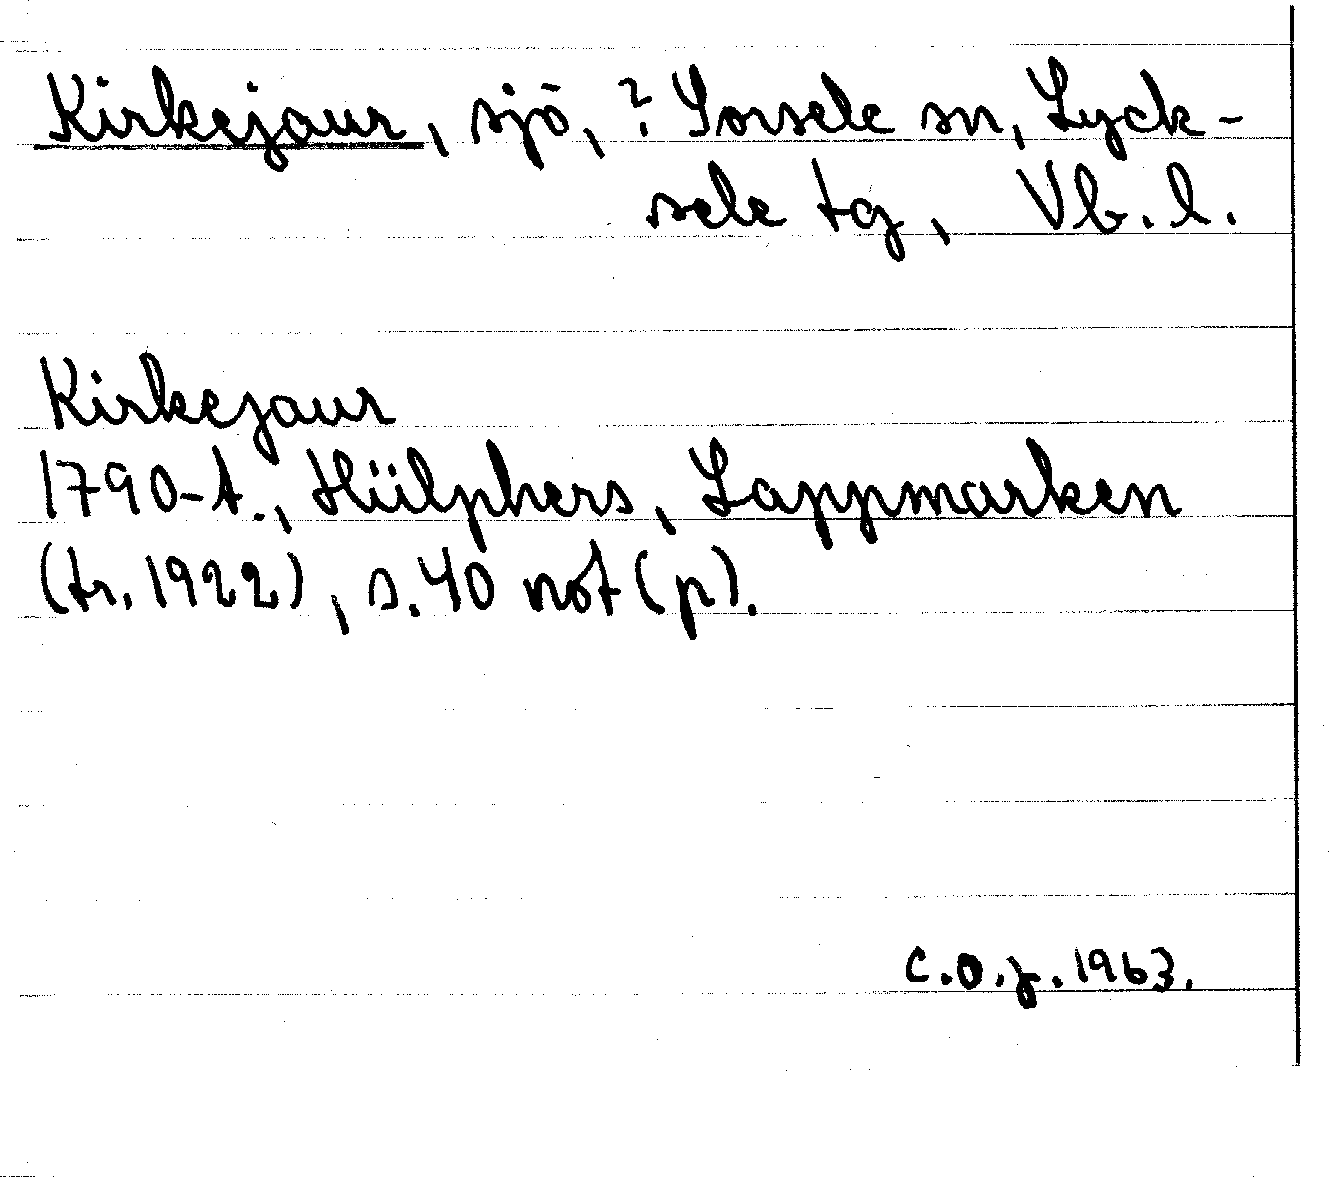 Kirkejaur, sjö, ? Sorsele sn, Lyck-
sele tg, Vb. l.
Kirkejaur
1790-t., Hülphers, Lappmarken
(tr. 1922), s. 40 not (p).
C.O.J. 1963.